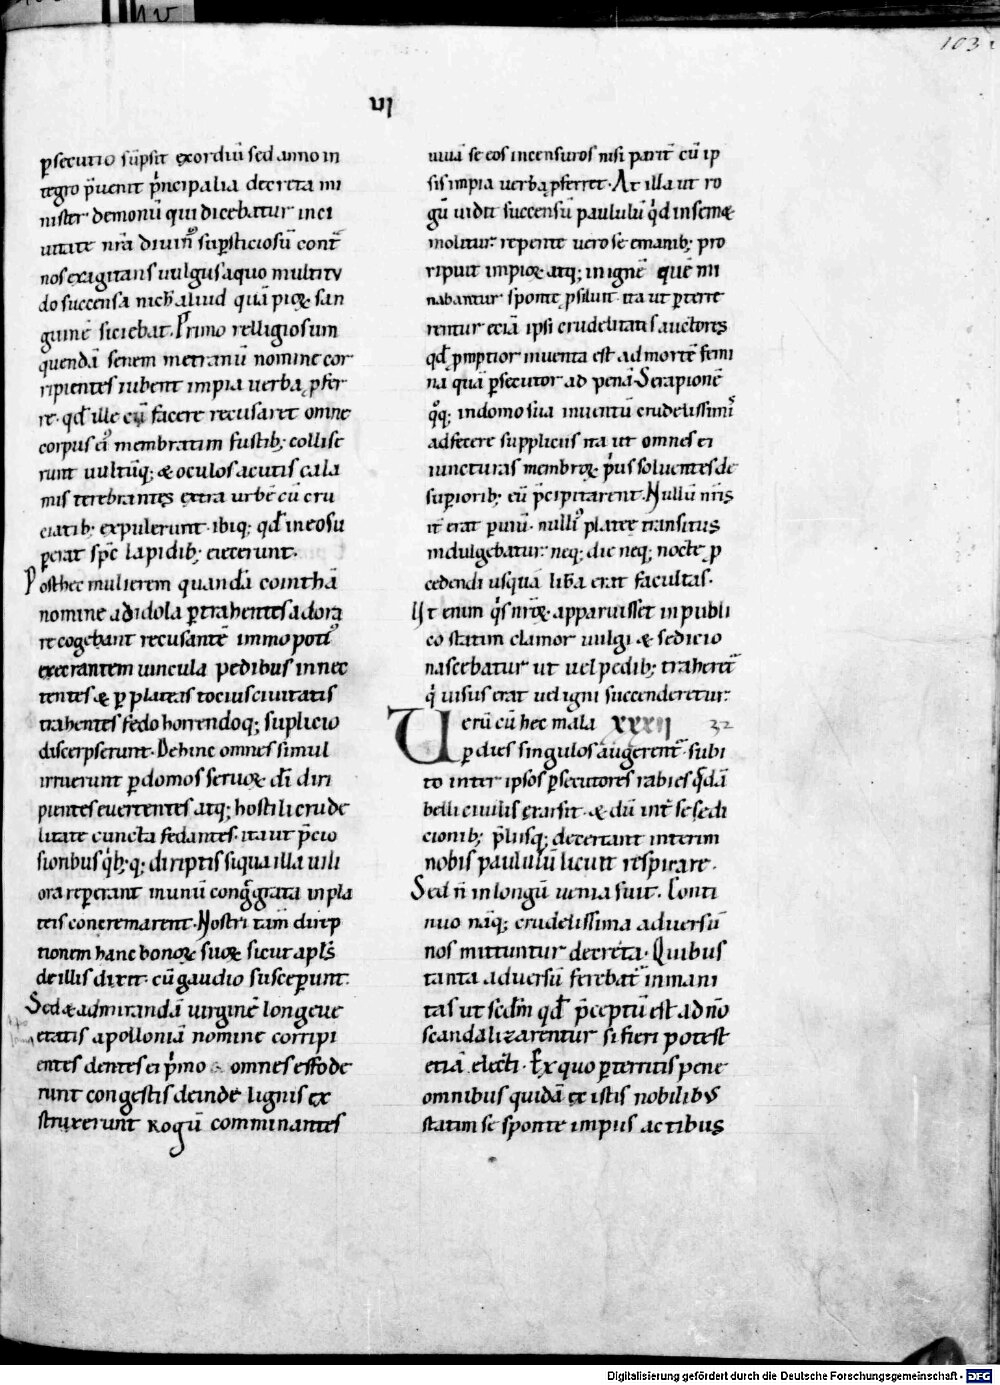 103
VI
psecutio sūpsit exordiū sed anno in
tegro p̄uenit p̍ncipalia decreta mi
nister demonū qui dicebatur in ci
uitate nr̄a diuin⁹ supsticiosū cont̄
nos exagitans uulgus a quo multitu
do succensa nich̄ aliud quā pioꝝ san
guinē siciebat. Primo relligiosum
quendā senem metranū nomine cor
ripientes iubent impia uerba ꝓfer
re. qd̄ ille cū facere recusaret omne
corpus ei⁹ membratim fustib; collise
runt uultūq; & oculos acutis cala
mis terebrantes extra urbē cū cru
ciatib; expulerunt. ibiq; qd̄ in eo su
perat sp̄c lapidib; eiecerunt.
Post hec mulierem quandā cointhā
nomine ad idola ptrahentes adora
re cogebant recusantē immo poti⁹
execrantem uincula pedibus innec
tentes & p plateas tocius ciuitatis
trahentes fedo horrendoq; suplicio
discerpserunt. Dehinc omnes simul
irruerunt p domos seruoꝝ dī diri
pientes euertentes atq; hostili crude
litate cuncta fedantes. ita ut p̄cio
sioribus q̍b;q; direptis siqua illa uili
ora reperant in unū congregata in pla
teis concremarent. Nostri tam̄ direp
tionem hanc bonoꝝ suoꝝ sicut apl̄s
de illis dixit. cū gaudio susceperunt.
Sed & admirandā uirginē longeue
etatis apolloniā nomine corripi
entes dentes ei p̍mo omnes effode
runt congestis deinde lignis ex
struxerunt rogū comminantes
uiuā se eos incensuros nisi parit̄ cū ip
sis impia uerba ꝓferret. At illa ut ro
gū uidit succensū paululū q̍d in semet
molitur. repente uero se e manib; pro
ripuit impioꝝ atq; in ignē quē mi
nabantur sponte psiluit. ita ut pterre
rentur eciā ipsi crudelitatis auctores
qd̄ ꝓmptior inuenta est ad mortē femi
na quā psecutor ad penā. Serapionē
q°q; in domo sua inuentū crudelissimis
adfecere suppliciis ita ut omnes ei
iuncturas membroꝝ p̍us soluentes de
superiorib; eū p̄cipitarent. Nullū nr̄is
it̄ erat puiū. nulli⁹ platee transitus
indulgebatur. neq; die neq; nocte p
cedendi usquā lib̄a erat facultas.
Ut enim q̍s nr̄oꝝ. apparuisset in publi
co statim clamor uulgi & sedicio
nascebatur ut uel pedib; traheret̄
q̍ uisus erat uel igni succenderetur.
Uerū cū hec mala XXXII 32
p dies singulos augerent̄. subi
to inter ipsos psecutores rabies q̄dā
belli ciuilis exarsit. & dū int̄ se sedi
cionib; p̄lusq; decertant interim
nobis paululū licuit respirare.
Sed n̄ in longū uenia fuit. Conti
nuo nāq; crudelissima aduersū
nos mittuntur decreta. Quibus
tanta aduersū ferebat̄ inmani
tas ut sedm̄ qd̄ p̄ceptū est a dn̄o
scandalizarentur si fieri potest
etiā electi. Ex quo pterritis pene
omnibus quidā ex istis nobilibus
statim se sponte impiis actibus
Digitalisierung gefördert durch die Deutsche Forschungsgemeinschaft - DFG